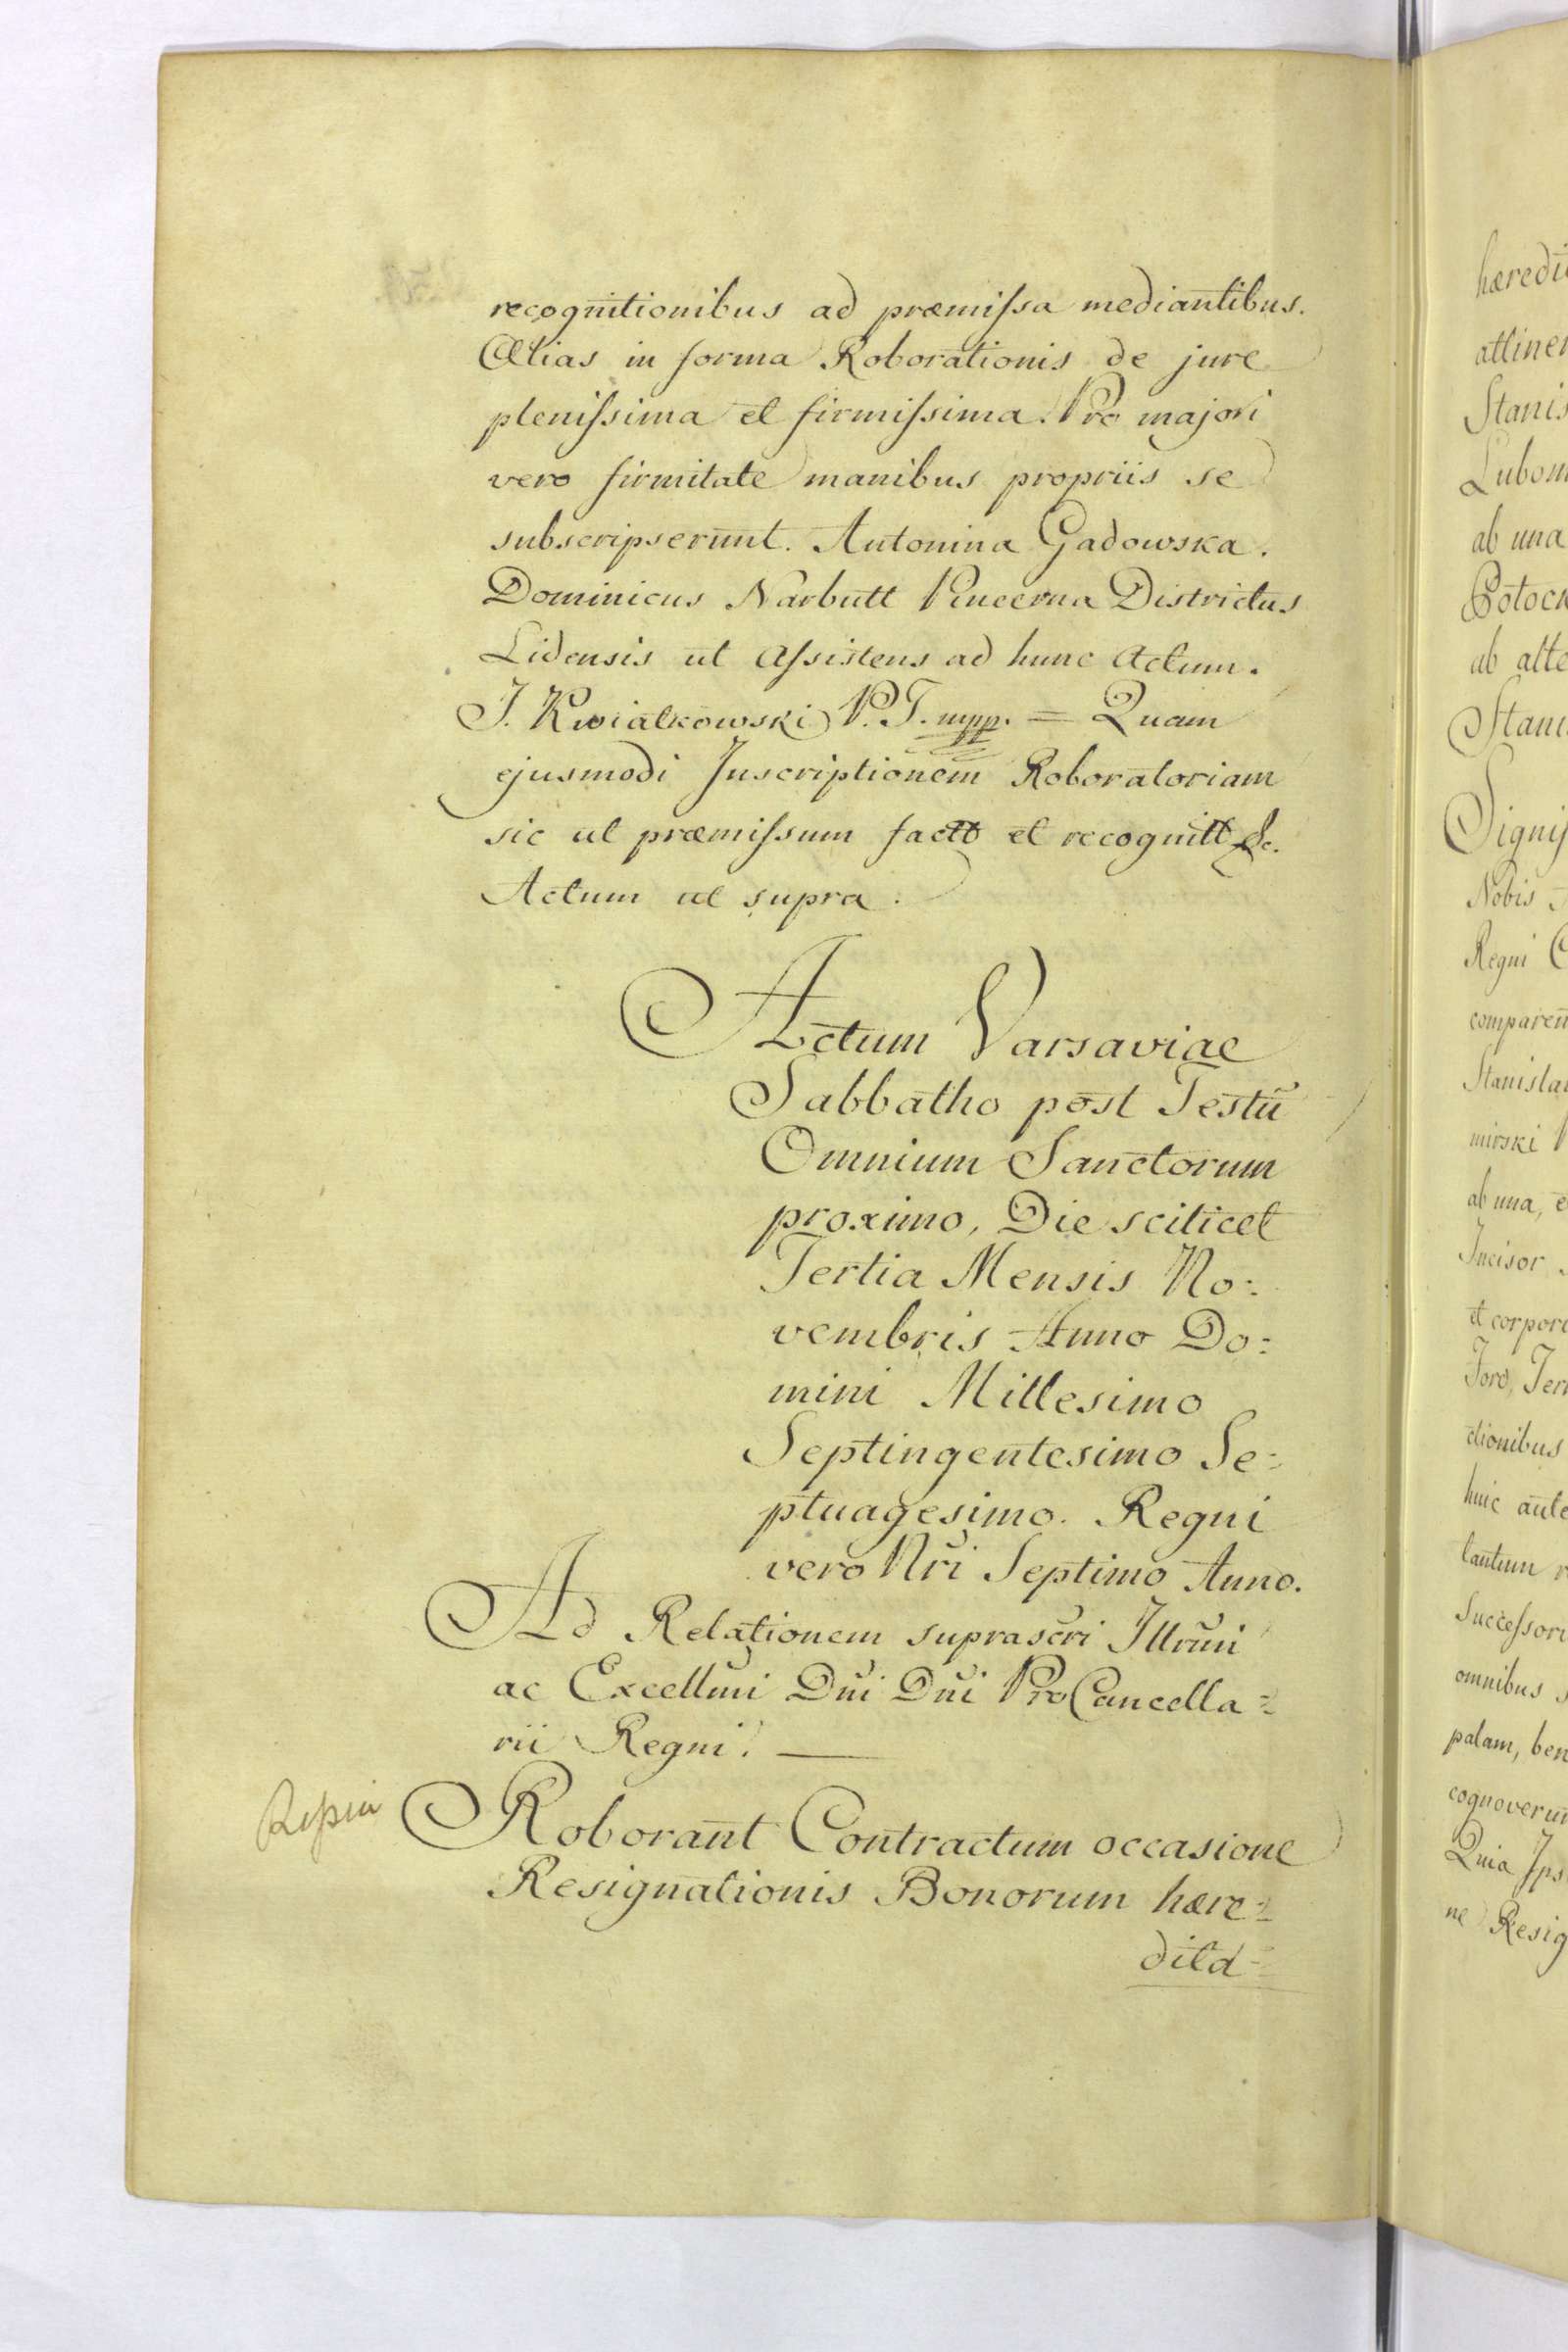 recognitionibus ad præmiſsa mediantibus.
Alias in forma Roborationis de jure
pleniſsima et firmiſsima. Pro majori
vero firmitate manibus propriis se
subscripserunt. Antonina Gadowska.
Dominicus Narbutt Pincerna Districtus
Lidensis ut Aſsistens ad hunc Actum.
J. Kwiatkowski P. T. mpp. = Quam
ejusmodi Inscriptionem Roboratoriam
sic ut præmiſsum factt et recognitt &c.
Actum ut supra.
Actum Varsaviae
Sabbatho post Festū
Omnium Sanctorum
proximo, Die scilicet
Tertia Mensis No:
vembris Anno Do:
mini Millesimo
Septingentesimo Se:
ptuagesimo. Regni
vero Nri Septimo Anno.
Ad Relationem suprascri Illrmi
ac Excellmi Dni Dni ProCancella:
rii Regni.
Roborant Contractum occasione
Resignationis Bonorum hære:
dita:
hæredi
attinen
Stanis
Lubom
ab una
Potock
ab alte
Stani
Signif
Nobis
Regni C
comparen
Stanisla
mirski
ab una, e
Incisor
et corpor
Foro, Ter
ctionibus
huic aute
tantum r
Succeſsori
omnibus s
palam, ben
cognoverun
Quia Ips
ne Resig